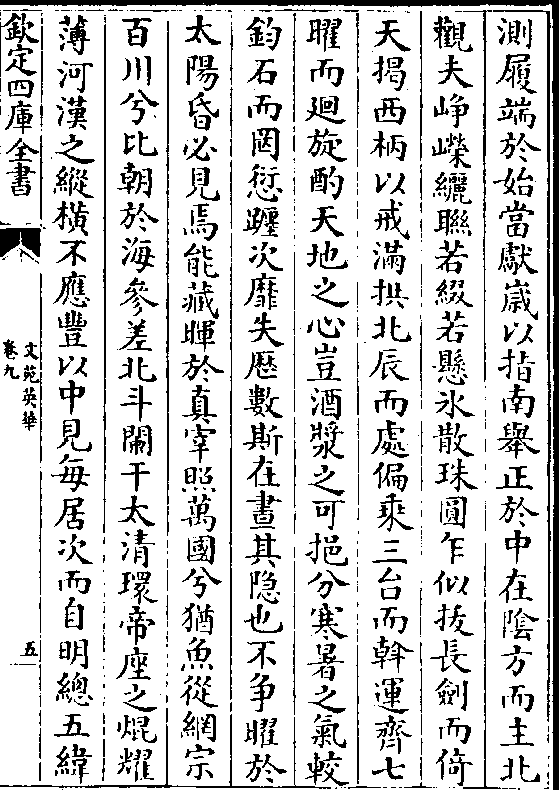 測履端於始當獻歲以指南舉正於中在陰方而主北
觀夫崢嶸纚聯若綴若懸氷散珠圓乍似拔長劍而倚
天揭西柄以戒滿拱北辰而處偏乘三台而斡運齊七
曜而廻旋酌天地之心豈酒漿之可挹分寒暑之氣較
鈞石而罔愆躔次靡失厯數斯在晝其隐也不争曜於
太陽昏必見焉能藏暉於真宰照萬國兮猶魚從網宗
百川兮比朝於海參差北斗闌干太清環帝座之焜耀
薄河漢之縱橫不應豐以中見每居次而自明總五緯
欽定四庫全書
文苑英華
卷九
五